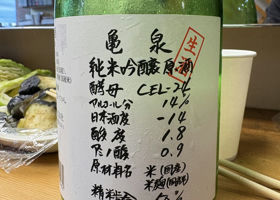 亀泉
生
純米吟醸原酒
酵母 CEL-24
アルコール分 14%
日本酒度 -14
酸度 1.8
アミノ酸 0.9
原材料名 米(国産)
米麹(国産米)
精米歩合